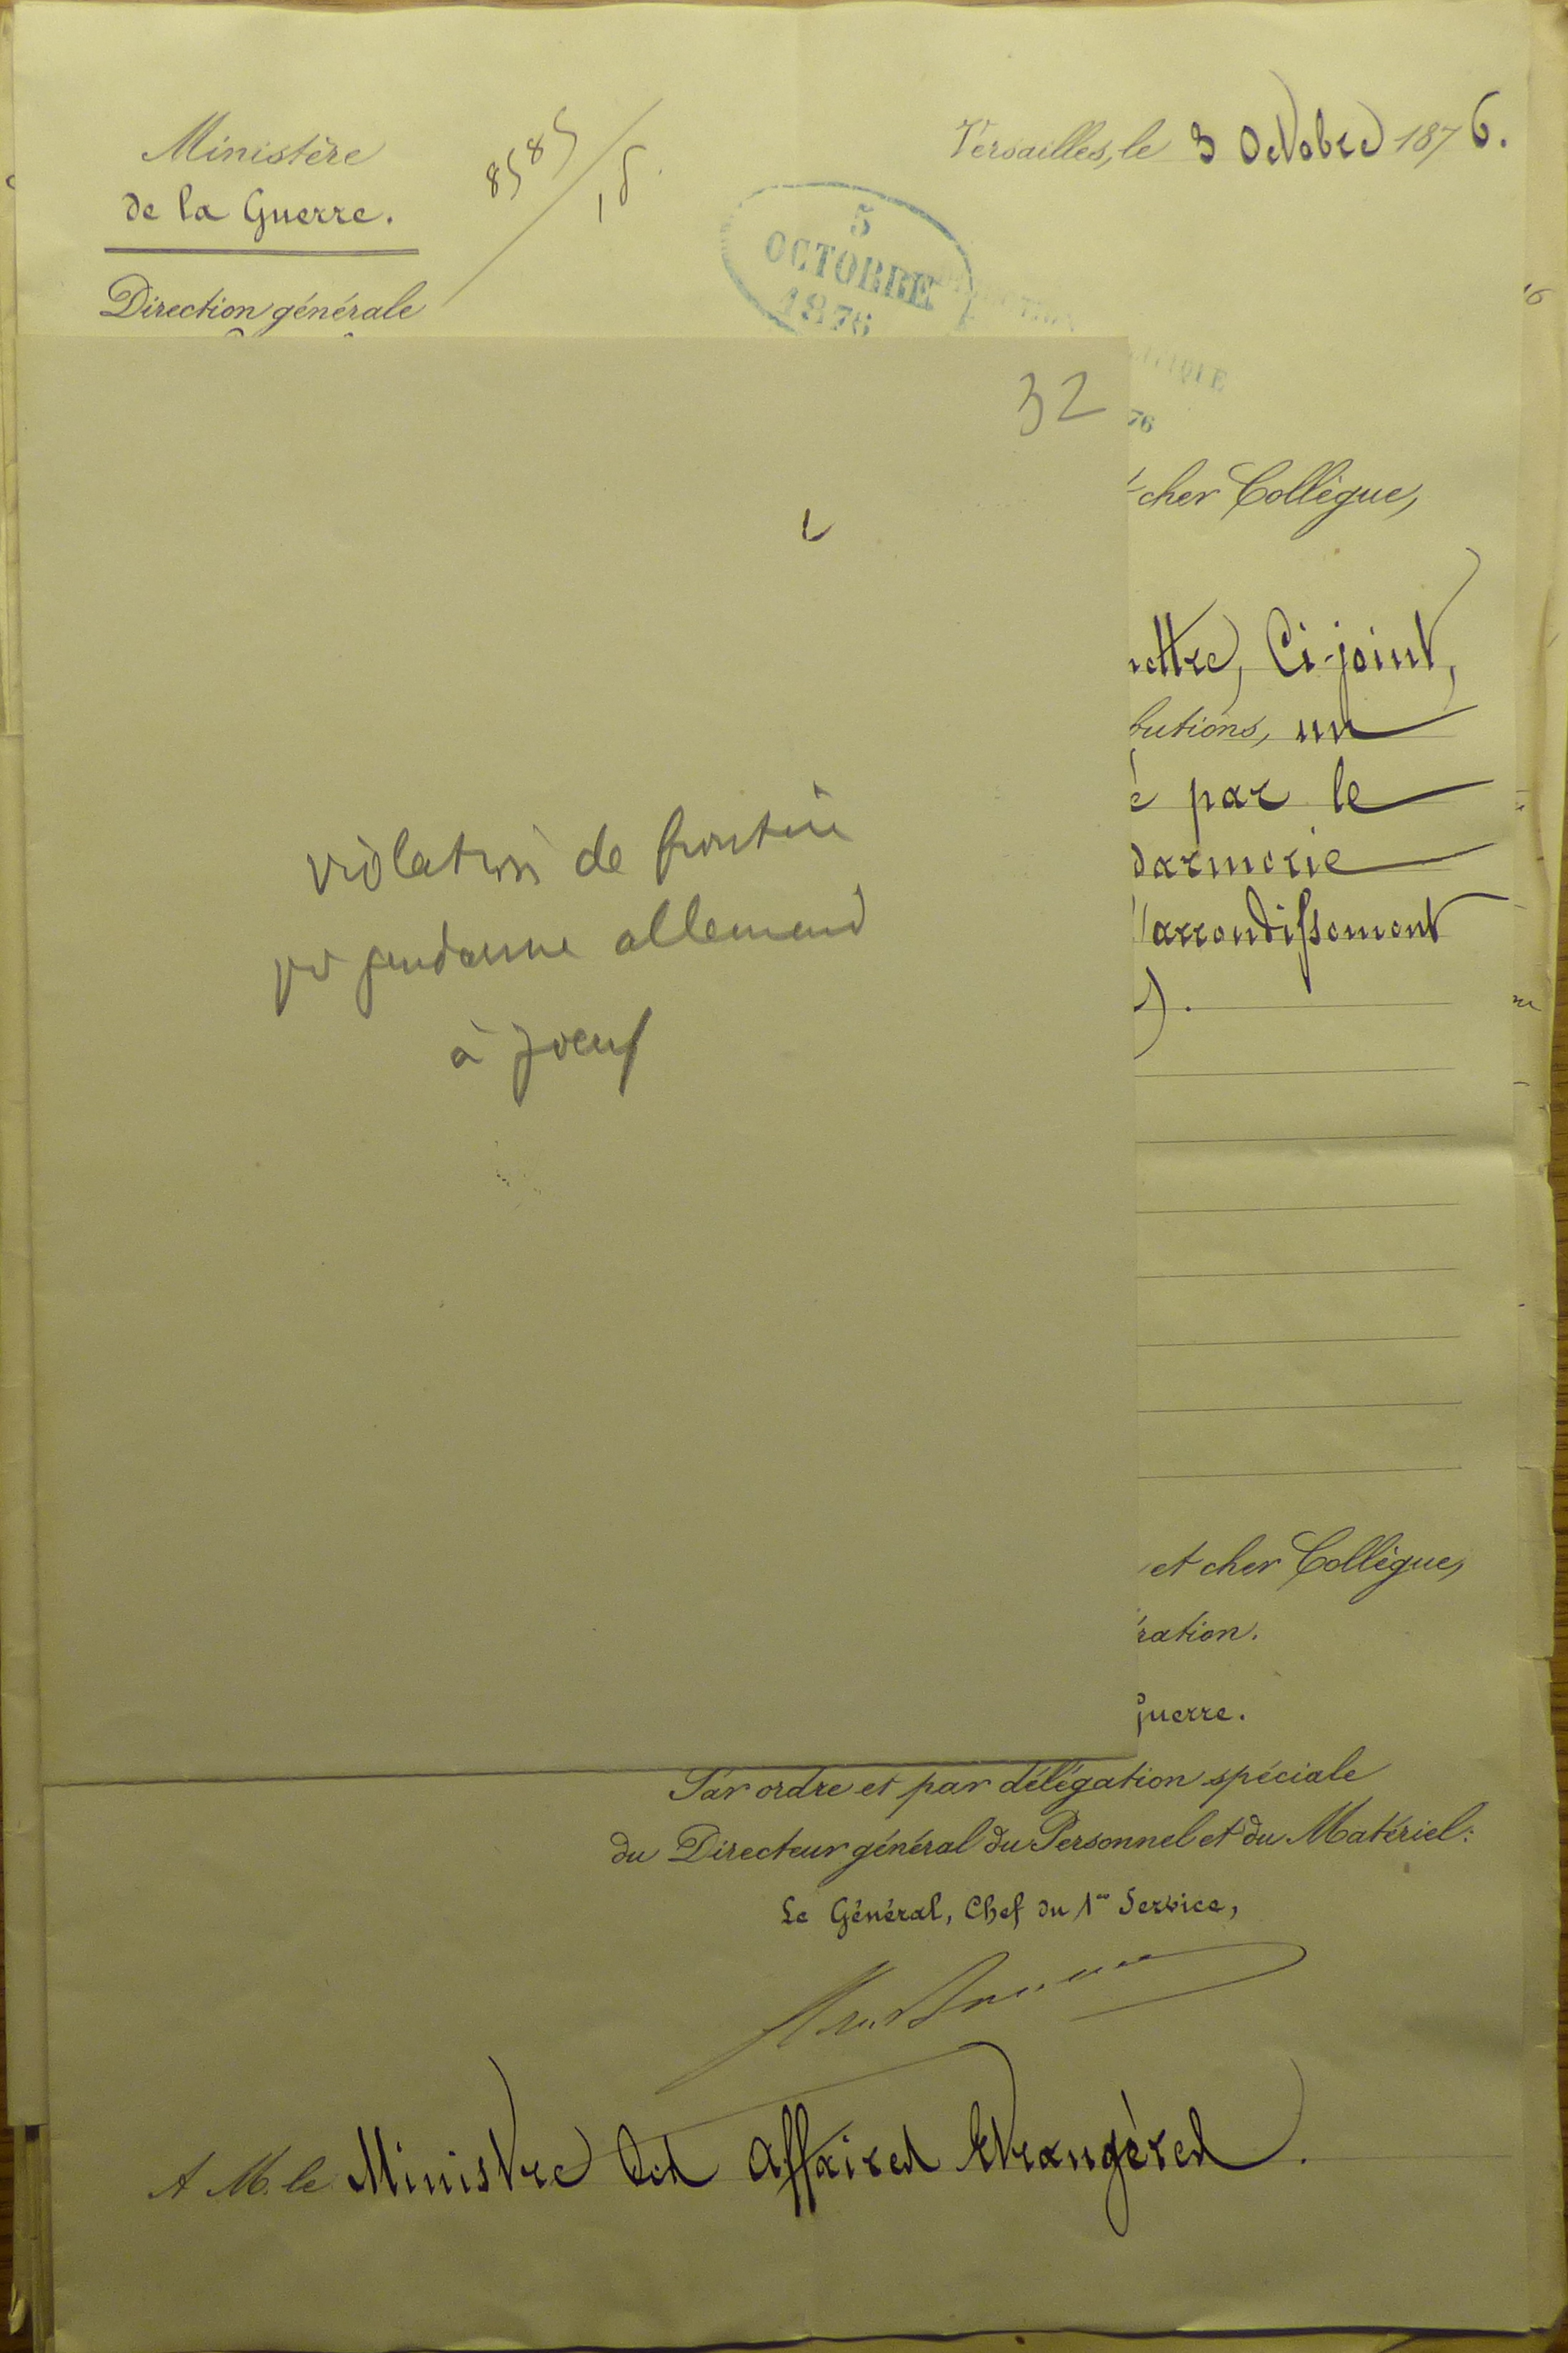 Ministère
de la Guerre.
Direction générale
8585
18.
Versailles, le 3 Octobre 1876.
5
OCTOBRE
1876
76
32
cher Collègue,
ettre, Ci-joint,
butions, un
é par le
darmerie
l'arrondissement
).
violation de frontière
par gendarme allemand
à Joeuf
et cher Collègue,
ration.
Guerre.
Par ordre et par délégation spéciale
du Directeur général du Personnel et du Matériel:
Le Général, Chef du 1er Service,
A M. le Ministre des Affaires Etrangères.